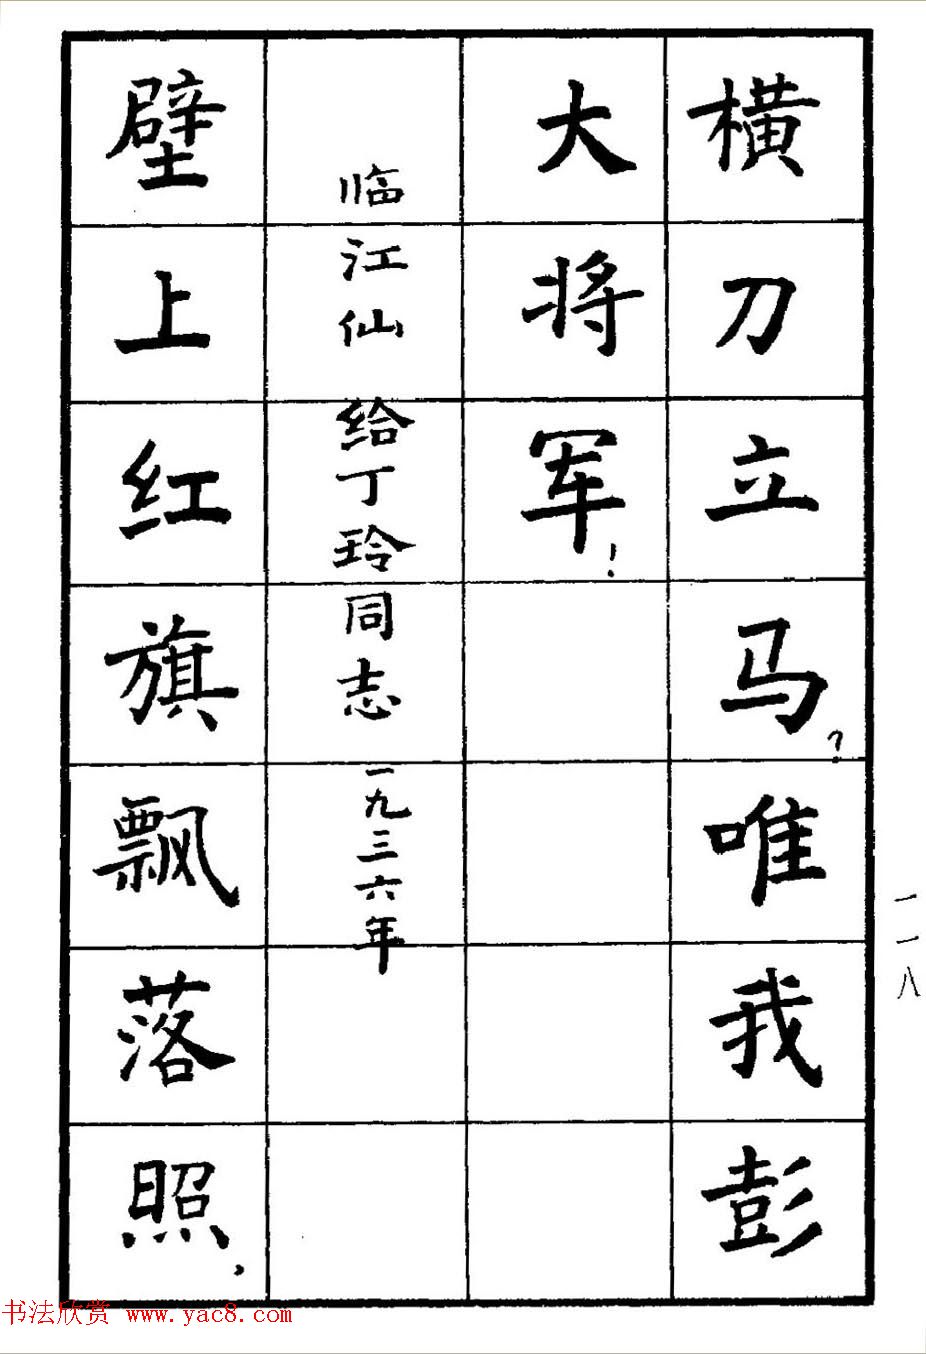 横刀立马?唯我彭
大将军!
临江仙 给丁玲同志 一九三六年
壁上红旗飘落照,
一一八
书法欣赏 www.yac8.com